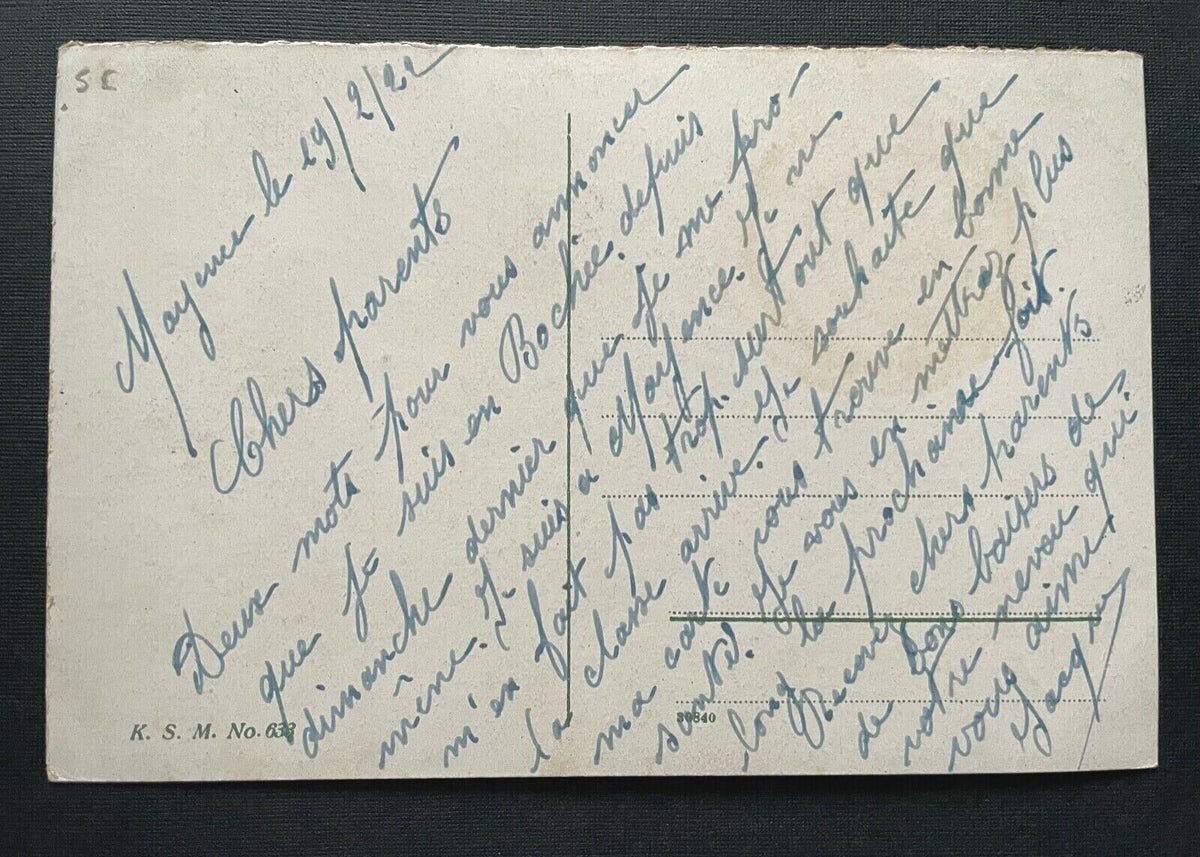 SC
Mayence le 19/2/22
Chers parents
Deux mots pour vous annoncer
que je suis en Bochie depuis
dimanche dernier que je me pro-
mène. Je suis a Mayence. Je ne
m'en fait pas trop surtout que
la classe arrive. Je souhaite que
ma carte vous trouve en bonne
santé. Je vous en mettrez plus
long la prochaine fois.
Recever chers parents
de bons baisers de
votre neveu qui
vous aime.
Jacques
K. S. M. No. 633
30840